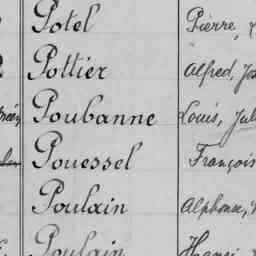 Potel Pierre,
Pottier Alfred,
Poubanne Louis,
Pouessel François
Poulain Alphonse,
Poulain Henri